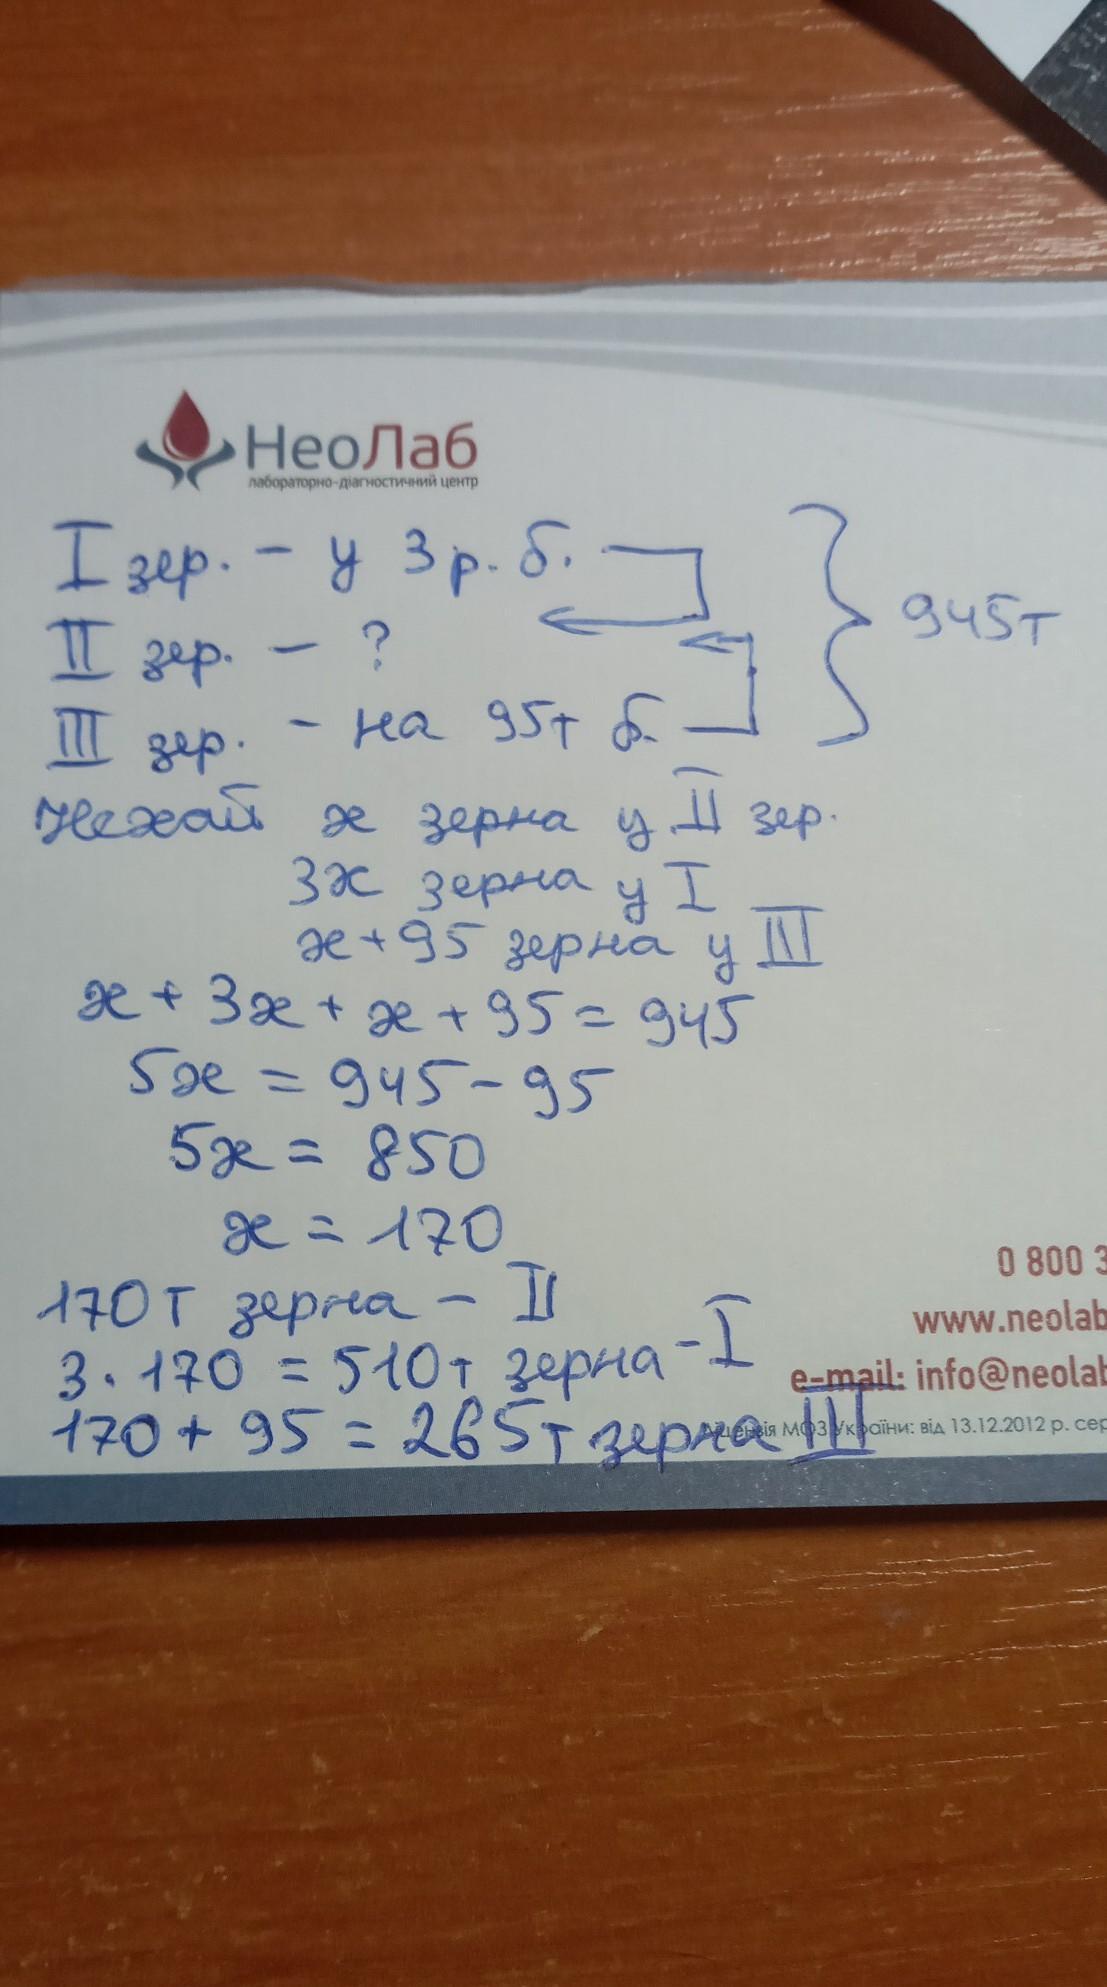 НеоЛаб
лабораторно-діагностичний центр
I зер. - у 3 р. б.
II зер. - ?
III зер. - на 95т б.
945т
Нехай х зерна у II зер.
3х зерна у I
х+95 зерна у III
х + 3х + х + 95 = 945
5х = 945 - 95
5х = 850
х = 170
170т зерна - II
3 · 170 = 510т зерна - I
170 + 95 = 265т зерна III
0 800 3
www.neolab
e-mail: info@neolab
МОЗ України: від 13.12.2012 р. сер